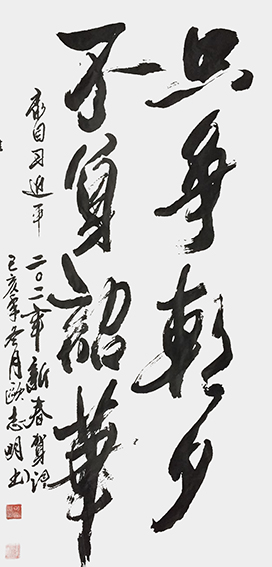 只争朝夕
不负韶華
录自习近平
二〇二〇年新春贺词
己亥年冬月欧志明书